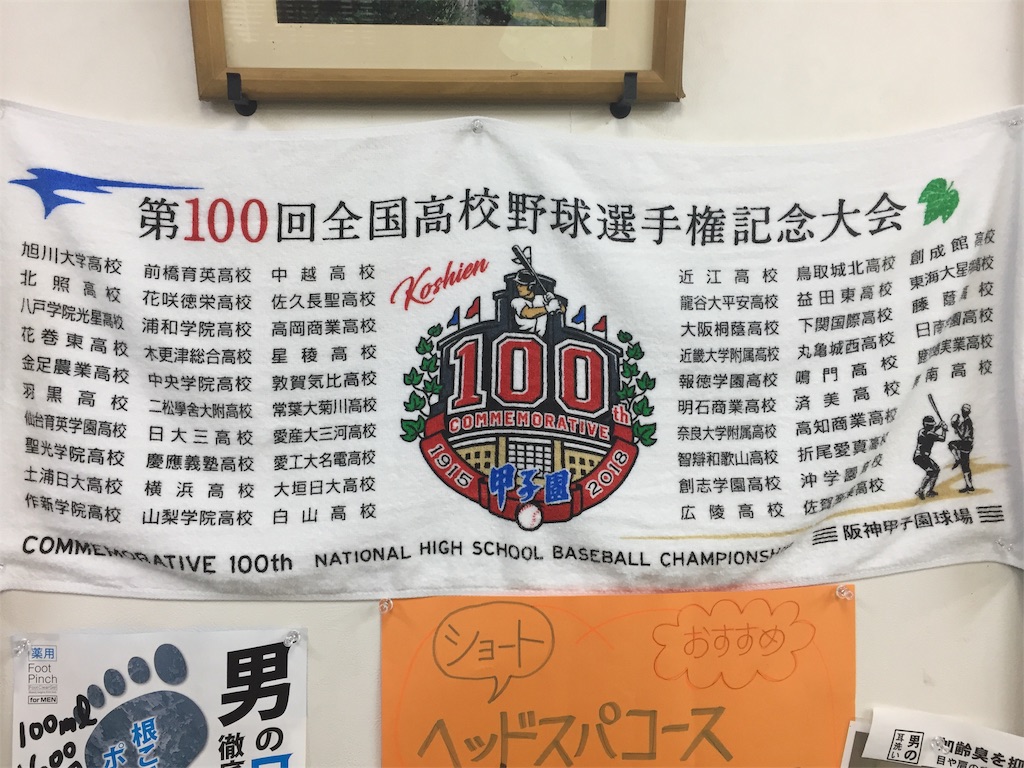 第100回全国高校野球選手権記念大会
旭川大学高校
北照高校
八戸学院光星高校
花巻東高校
金足農業高校
羽黒高校
仙台育英学園高校
聖光学院高校
土浦日大高校
作新学院高校
前橋育英高校
花咲徳栄高校
浦和学院高校
木更津総合高校
中央学院高校
二松學舍大附高校
日大三高校
慶應義塾高校
横浜高校
山梨学院高校
中越高校
佐久長聖高校
高岡商業高校
星稜高校
敦賀気比高校
常葉大菊川高校
愛産大三河高校
愛工大名電高校
大垣日大高校
白山高校
Koshien
100th
COMMEMORATIVE
1915
2018
甲子園
近江高校
龍谷大平安高校
大阪桐蔭高校
近畿大学附属高校
報徳学園高校
明石商業高校
奈良大学附属高校
智辯和歌山高校
創志学園高校
広陵高校
鳥取城北高校
益田東高校
下関国際高校
丸亀城西高校
鳴門高校
済美高校
高知商業高校
折尾愛真高校
沖学園高校
佐賀商業高校
創成館高校
東海大星翔高校
藤蔭高校
日南学園高校
実業高校
南高校
阪神甲子園球場
COMMEMORATIVE 100th NATIONAL HIGH SCHOOL BASEBALL CHAMPIONSHIP
薬用
Foot
Pinch
for MEN
100ml
男の
徹
根こ
ポ
ショート
おすすめ
ヘッドスパコース
男の
耳洗い
加齢臭を抑
目や肩の